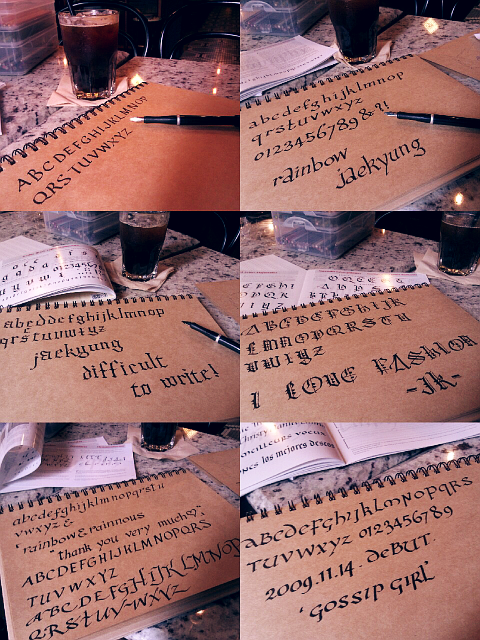 ABCDEFGHIJKLMNOP
QRSTUVWXYZ
abcdefghijklmnop
qrstuvwxyz
0123456789&?!
rainbow
jaekyung
abcddefghijklmnop
qrstuvwxyz
jaekyung
difficult
to write!
ABCDEFGHIJK
LMNOPQRSTU
VWXYZ
I LOVE FASHION
-JK-
abcdefghijklmnopqrstu
vwxyz &
'rainbow & rainnous
"thank you very much?"
ABCDEFGHIJKLMNOPQRS
TUVWXYZ
ABCDEFGHIJKLMNOP
QRSTUVWXYZ
los mejores deseos
ABCDEFGHIJKLMNOPQRS
TUVWXYZ 0123456789
2009.11.14. DEBUT.
'GOSSIP GIRL'